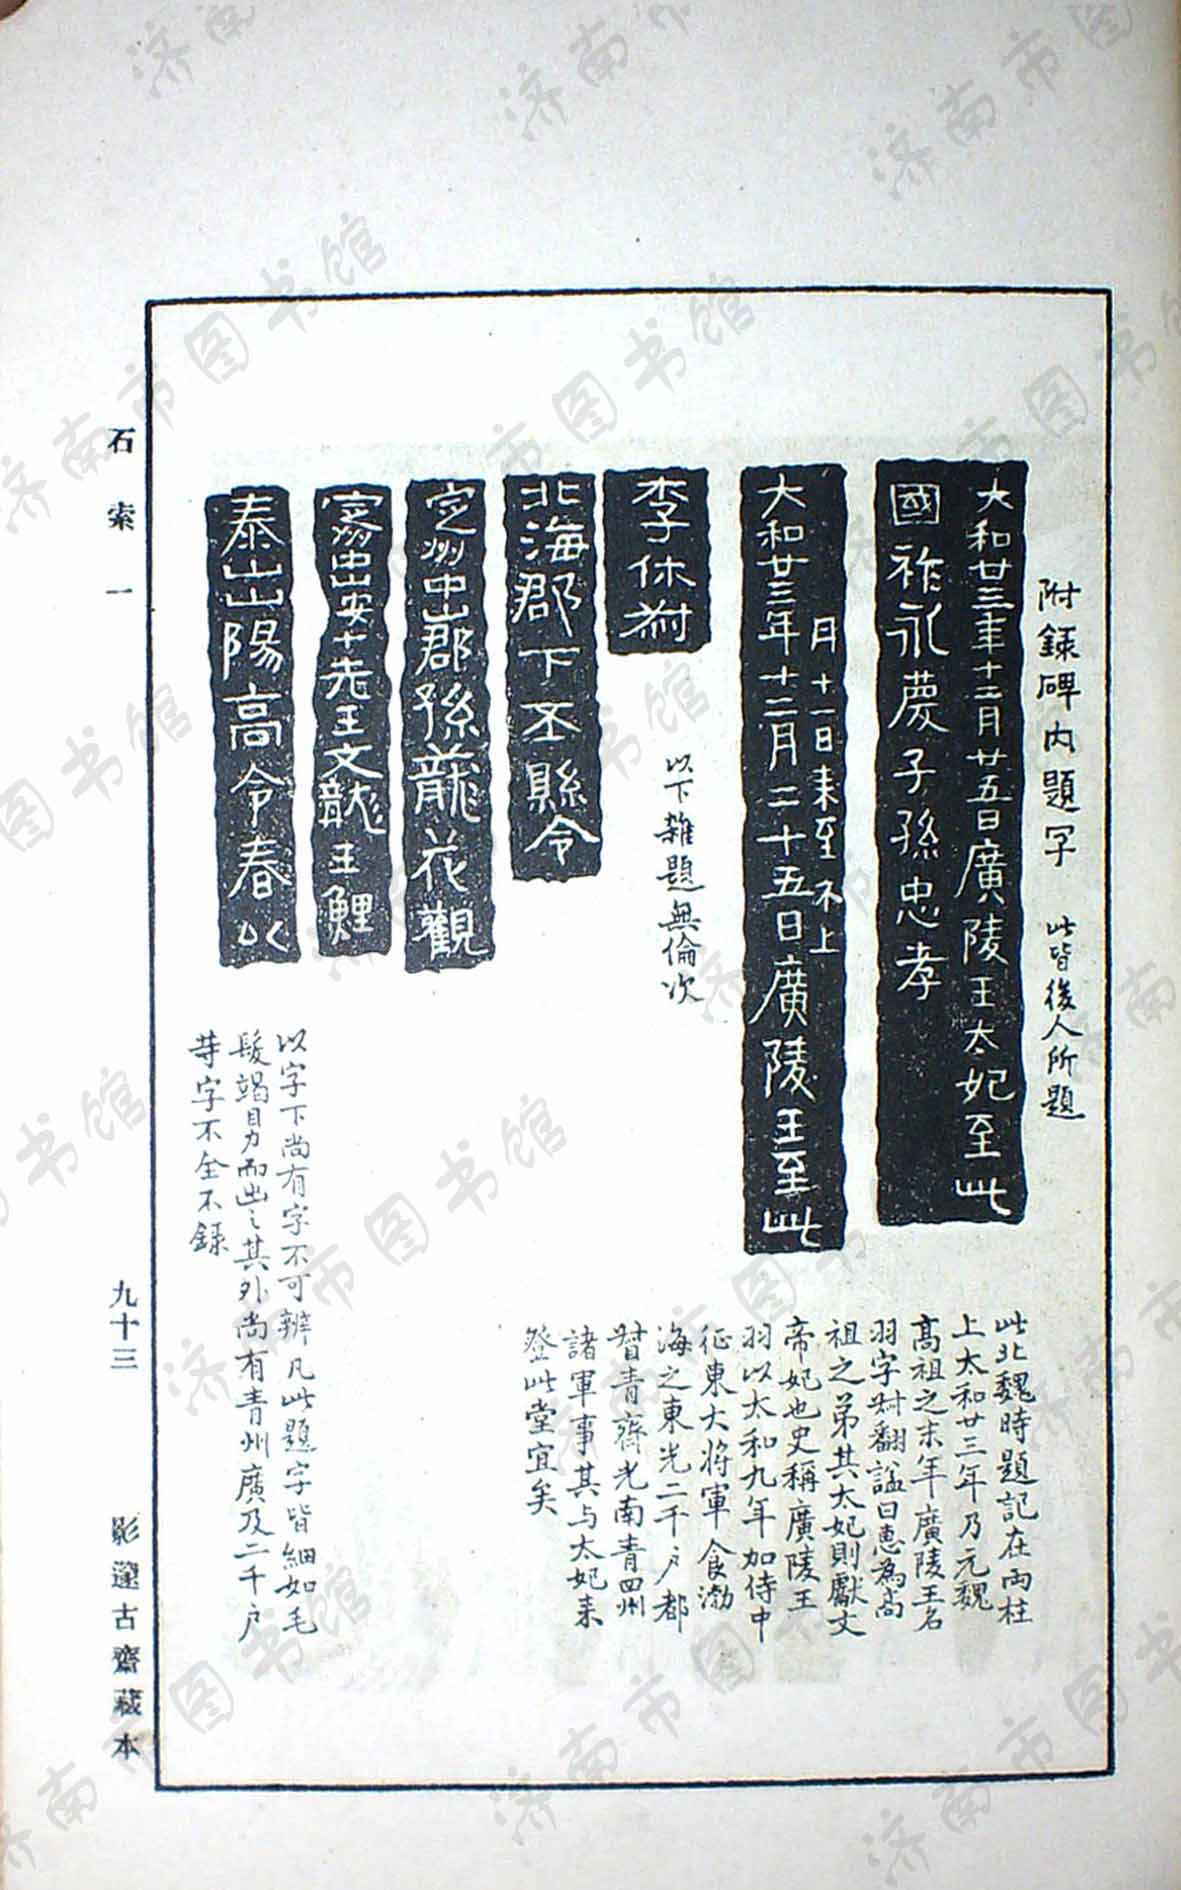 附錄碑內題字 此皆後人所題
大和廿三年十二月廿五日廣陵王太妃至此
國祚永慶子孫忠孝
月十一日来至不上
大和廿三年十二月二十五日廣陵王至此
此北魏時題記在兩柱
上太和廿三年乃元魏
高祖之末年廣陵王名
羽字叔翻諡曰惠為高
祖之弟其太妃則獻文
帝妃也史稱廣陵王
羽以太和九年加侍中
征東大將軍食渤
海之東光二千户都
督青齊光南青四州
諸軍事其与太妃来
登此堂宜矣
李休
以下雜題無倫次
北海郡下丕縣令
定州中山郡孫龍花觀
中山安十先王文龍王鯉
泰山山陽高令春以
以字下尚有字不可辨凡此題字皆細如毛
髮竭目力而出之其外尚有青州廣及二千户
等字不全不錄
石索一
九十三
影邃古齋藏本
济南市图书馆